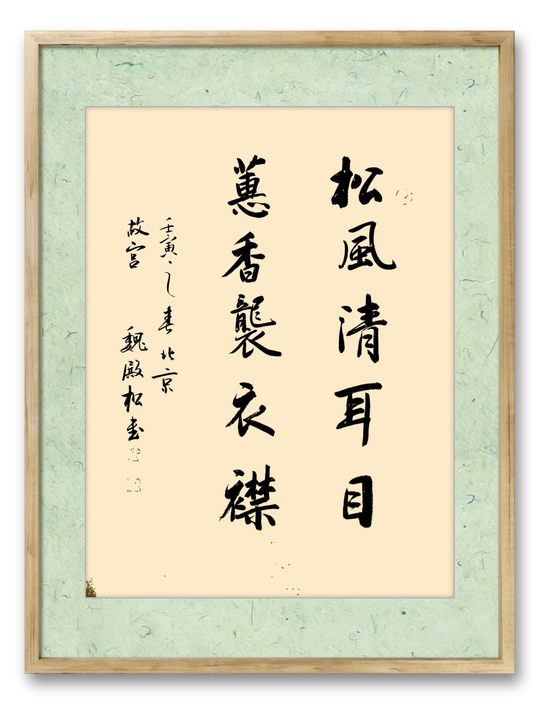 松風清耳目
蕙香襲衣襟
壬寅之春北京
故宮 魏殿松书